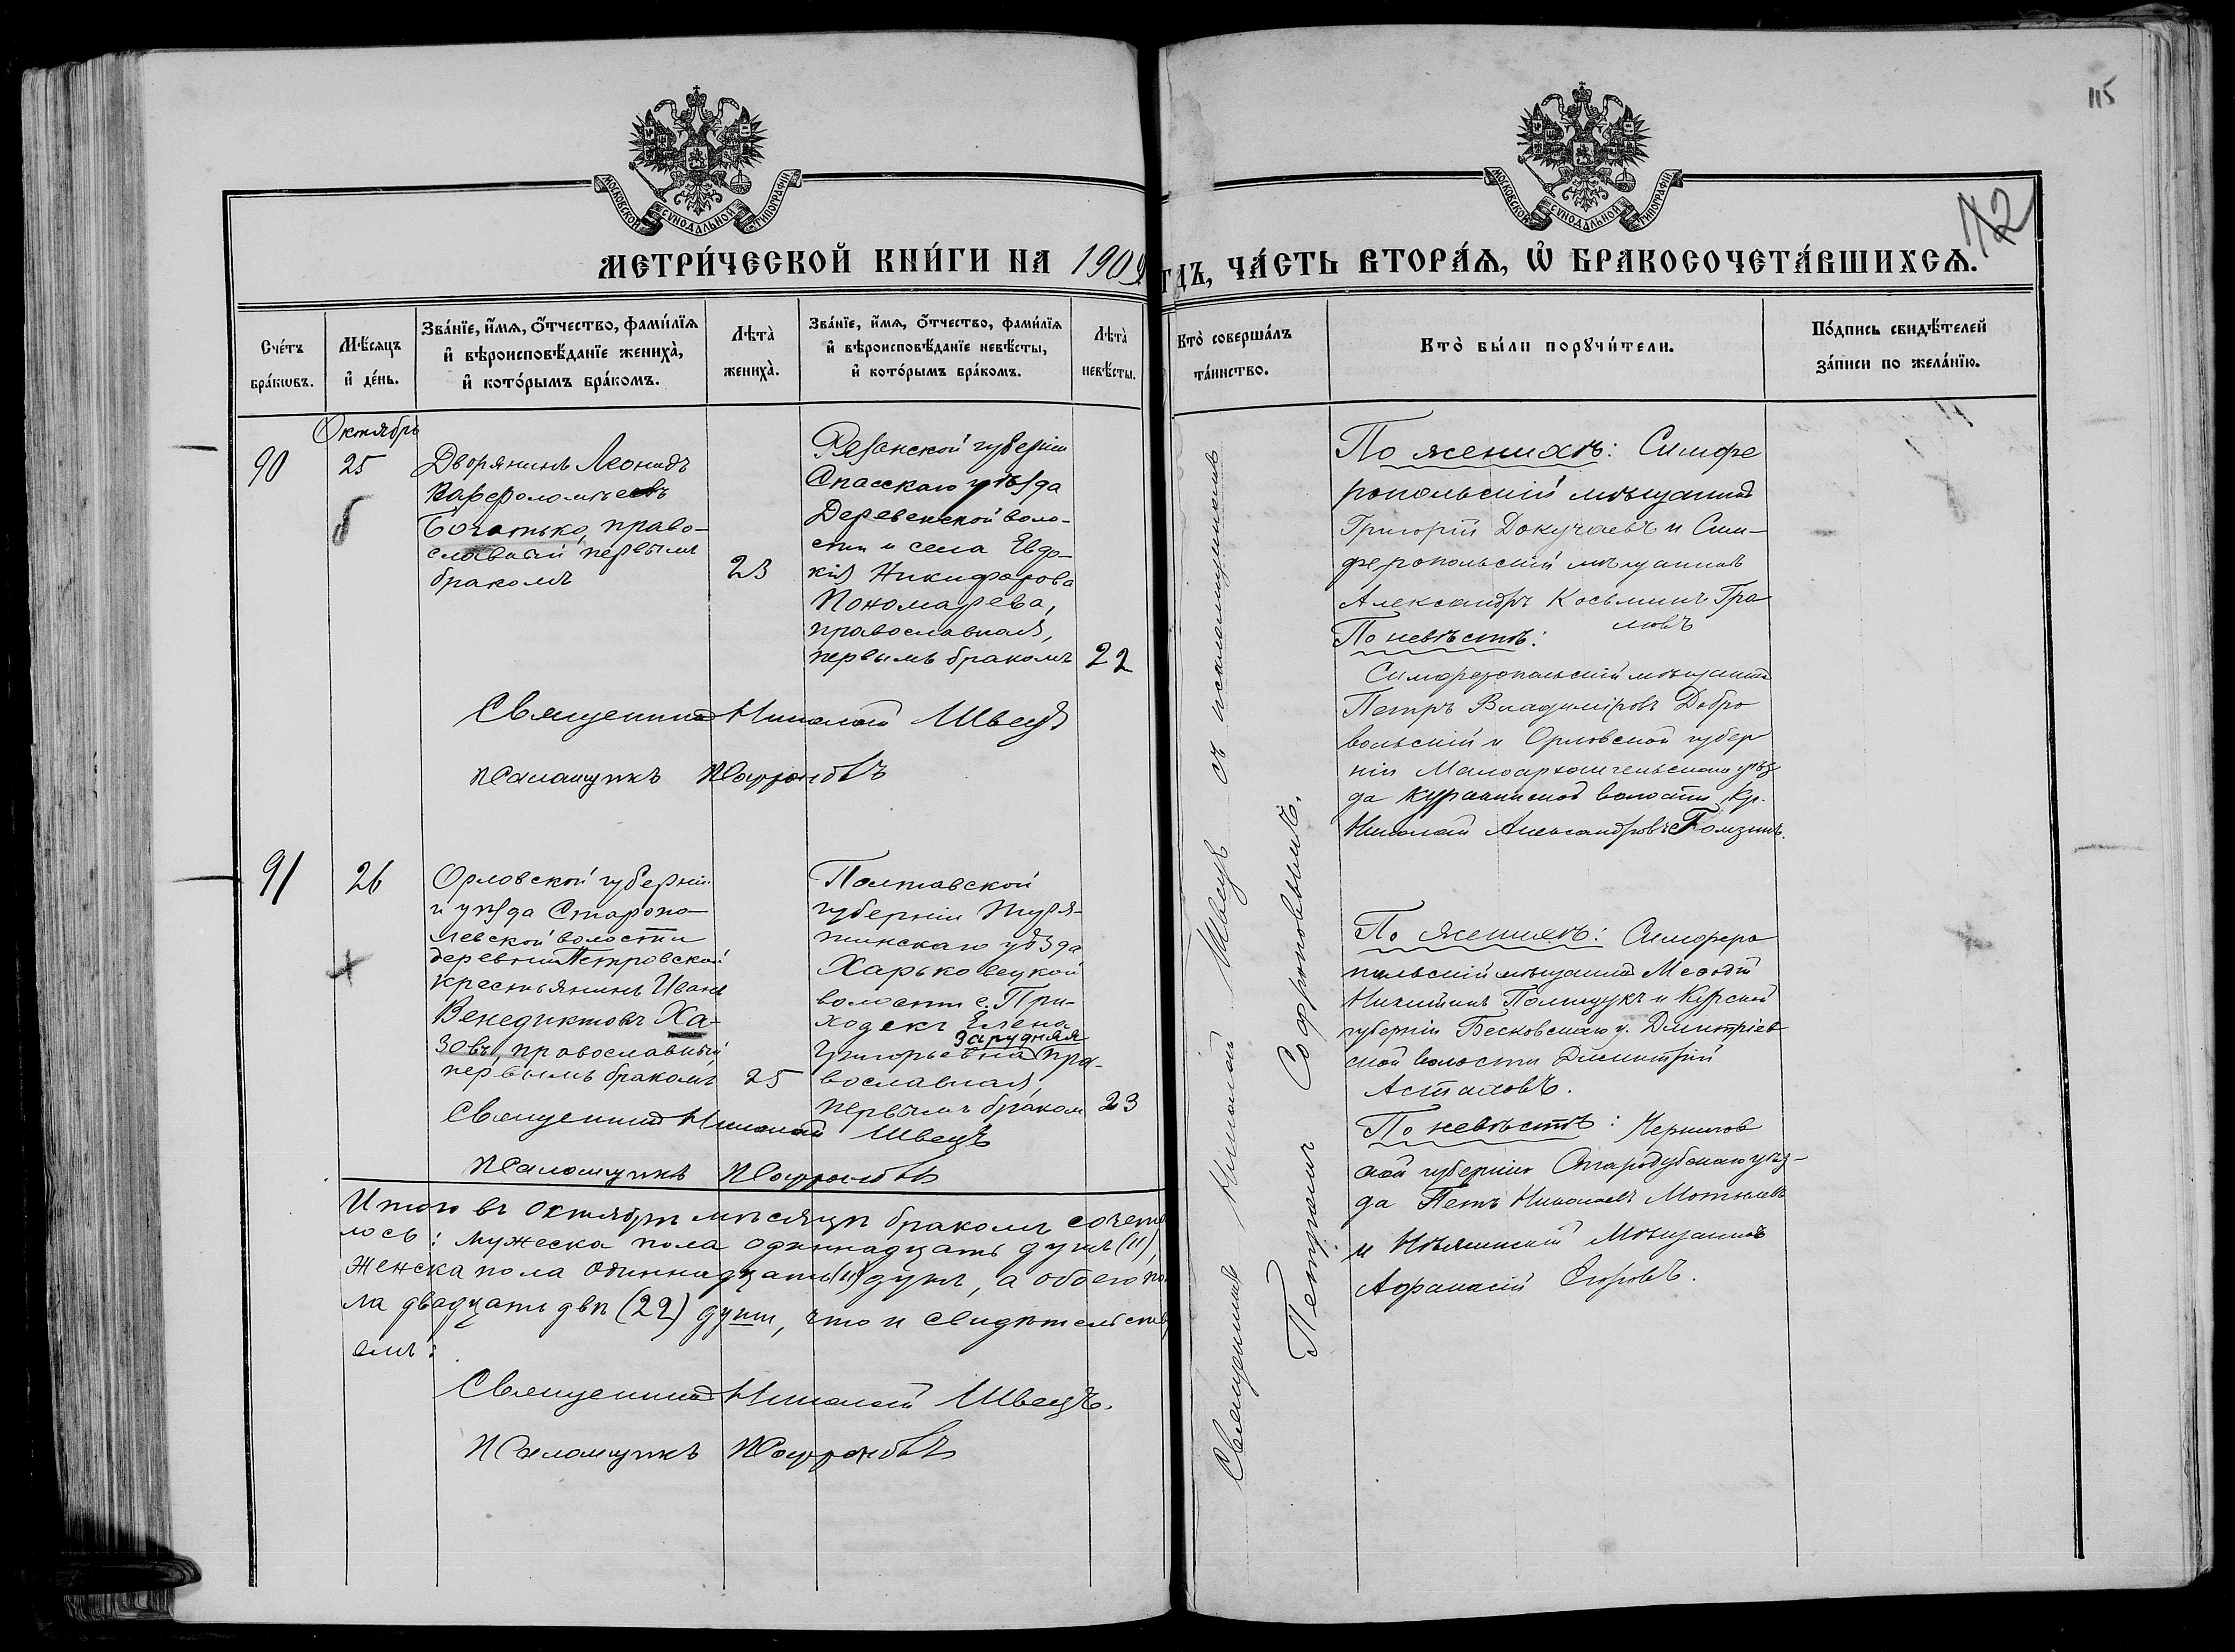 115
112
МОСКОВСКОЙ СѴНОДАЛЬНОЙ ТИПОГРАФІИ
МОСКОВСКОЙ СѴНОДАЛЬНОЙ ТИПОГРАФІИ
МЕТРИ́ЧЕСКОЙ КНИ́ГИ НА 1909
ГДЪ, ЧА́СТЬ ВТОРА́Ѧ, Ѡ҆ БРАКОСОЧЕТА́ВШИХСѦ.
Счéтъ бра́кѡвъ.
Мѣ́сяцъ и҆ де́нь.
Зва́нїе, и҆́мѧ, ѻ҆́тчество, фами́лїѧ и҆ вѣроисповѣ́данїе жениха̀, и҆ кото́рымъ бра́комъ.
Лѣта̀ жениха̀.
Зва́нїе, и҆́мѧ, ѻ҆́тчество, фами́лїѧ и҆ вѣроисповѣ́данїе невѣ́сты, и҆ кото́рымъ бра́комъ.
Лѣта̀ невѣ́сты.
Кто̀ соверша́лъ та́инство.
Кто̀ бы́ли порꙋчи́тели.
По́дпись свидѣ́телей за́писи по жела́нїю.
Октябрь
90
25
Дворянинъ Леонидъ
Варфоломѣевъ
Богатько, право-
славный первымъ
бракомъ
23
Резанской губерніи
Спасскаго уѣзда
Деревенской воло-
сти и села Евдо-
кія Никифорова
Пономарева,
православная,
первымъ бракомъ
22
Священникъ Николай Швецъ
Псаломщикъ Софроновъ
Священникъ Николай Швецъ съ псаломщикомъ
Петромъ Софроновымъ.
По женихѣ: Симфе
ропольскій мѣщанинъ
Григорій Докучаевъ и Сим-
феропольскій мѣщанинъ
Александръ Косьминъ Гра
мовъ
По невѣстѣ:
Симферопольскій мѣщанинъ
Петръ Владиміровъ Добро
вольскій и Орловской губер
ніи Малоархангельскаго уѣз
да волости, кр.
Николай Александровъ
91
26
Орловской губерніи
и уѣзда Старопо-
левской волости
деревни Петровской
крестьянинъ Иванъ
Венедиктовъ Ха-
зовъ, православный
первымъ бракомъ
25
Полтавской
губерніи
уѣзда
Харьковецкой
волости с. При-
ходекъ Елена
Зарудняя
Григорьевна пра-
вославная,
первымъ браком
23
Священникъ Николай Швецъ
Псаломщикъ Софроновъ
По женихѣ: Симферо
польскій мѣщанинъ Меѳодій
Никитинъ Полищукъ и Курской
губерніи у. Дмитріев
ской волости Димитрій
Астаховъ.
По невѣстѣ: Чернигов
ской губерніи Стародубскаго уѣз-
да Петръ Николаевъ
и мѣщанинъ
Афанасій Егоровъ.
Итого въ октябрѣ мѣсяцѣ бракомъ сочета
лось: мужеска пола одиннадцать душъ (11),
женска пола одиннадцать (11) душъ, а обоего по
ла двадцать двѣ (22) души, что и свидѣтельств
емъ:
Священникъ Николай Швецъ.
Псаломщикъ Софроновъ